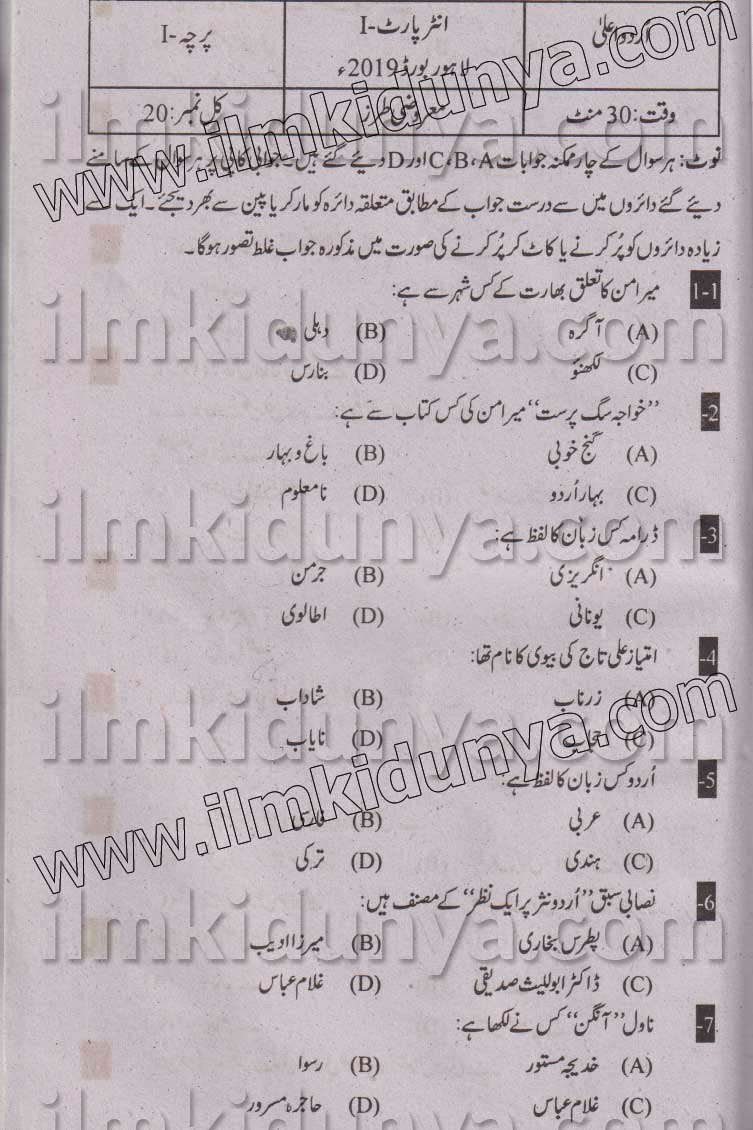 اُردو اعلیٰ انٹر پارٹ-I پرچہ-I
لاہور بورڈ 2019ء
وقت: 30 منٹ معروضی طرز کل نمبر: 20
نوٹ: ہر سوال کے چار ممکنہ جوابات C، B، A اور D دیئے گئے ہیں۔ جوابی کاپی پر ہر سوال کے سامنے
دیئے گئے دائروں میں سے درست جواب کے مطابق متعلقہ دائرہ کو مارکر یا پین سے بھر دیجئے۔ ایک سے
زیادہ دائروں کو پُر کرنے یا کاٹ کر پُر کرنے کی صورت میں مذکورہ جواب غلط تصور ہوگا۔
1-1 میر امن کا تعلق بھارت کے کس شہر سے ہے:
(A) آگرہ (B) دہلی
(C) لکھنؤ (D) بنارس
2- ”خواجہ سگ پرست“ میر امن کی کس کتاب سے ہے:
(A) گنج خوبی (B) باغ و بہار
(C) بہار اُردو (D) نامعلوم
3- ڈرامہ کس زبان کا لفظ ہے:
(A) انگریزی (B) جرمن
(C) یونانی (D) اطالوی
4- امتیاز علی تاج کی بیوی کا نام تھا:
(A) زرناب (B) شاداب
(C) حجاب (D) نایاب
5- اُردو کس زبان کا لفظ ہے:
(A) عربی (B) فارسی
(C) ہندی (D) ترکی
6- نصابی سبق ”اُردو نثر پر ایک نظر“ کے مصنف ہیں:
(A) پطرس بخاری (B) میرزا ادیب
(C) ڈاکٹر ابواللیث صدیقی (D) غلام عباس
7- ناول ”آنگن“ کس نے لکھا ہے:
(A) خدیجہ مستور (B) رسوا
(C) غلام عباس (D) حاجرہ مسرور
www.ilmkidunya.com
www.ilmkidunya.com
ilmkidunya.com
ilmkidunya.com
ilmkidunya.com
ilmkidunya.com
ilmkidunya.com
ilmkidunya.com